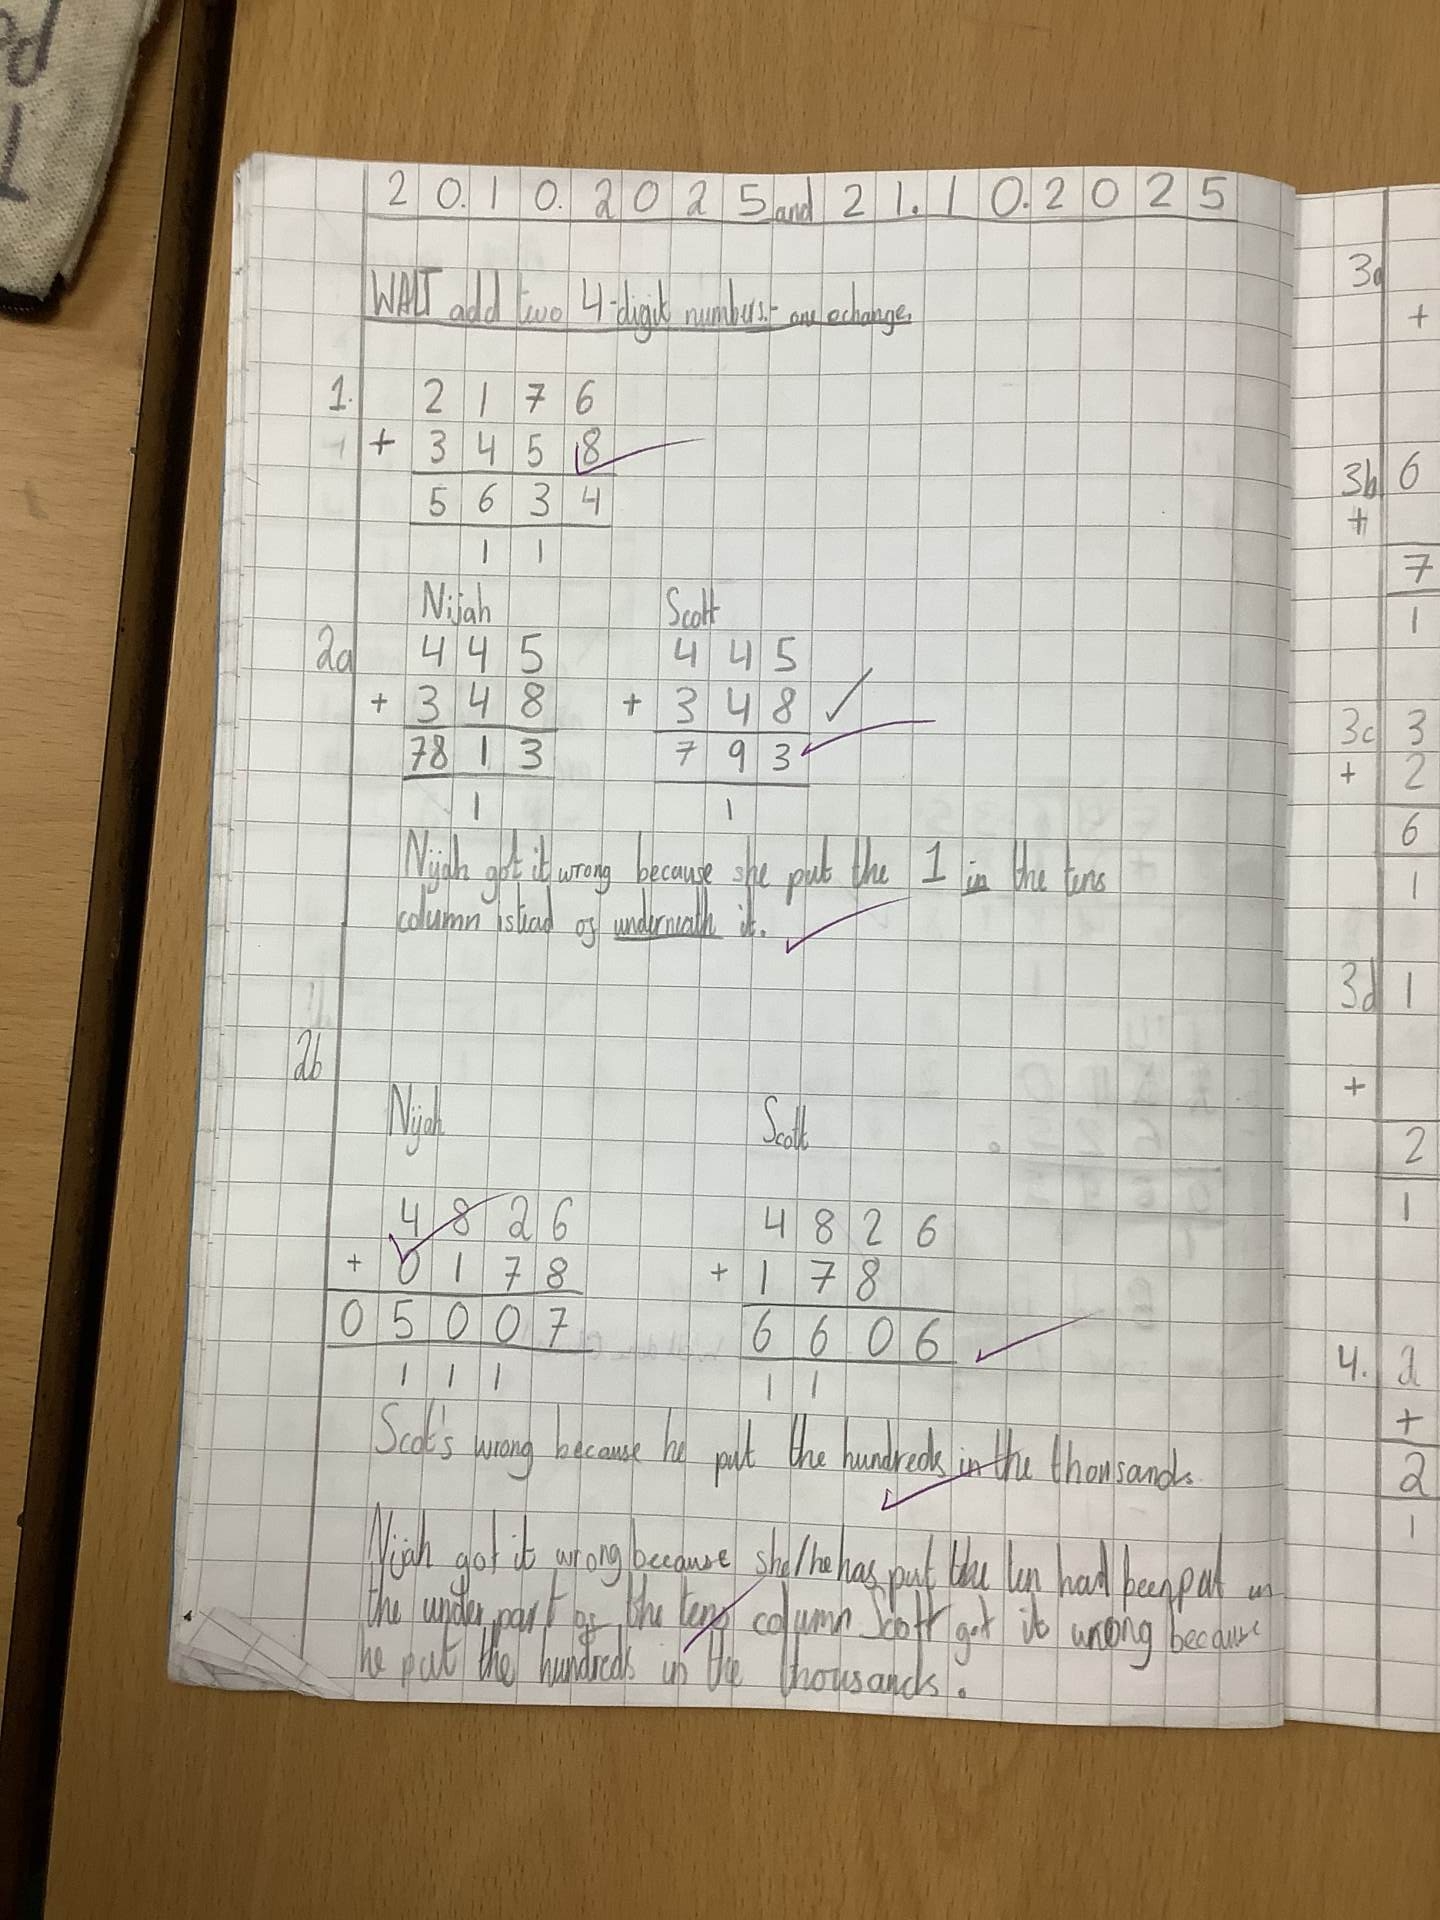 20.10.2025 and 21.10.2025
WALT add two 4-digit numbers - one echange.
1. 2 1 7 6
+ 3 4 5 8
5 6 3 4
1 1
Nijah Scott
2a 4 4 5 4 4 5
+ 3 4 8 + 3 4 8
78 1 3 7 9 3
1 1
Nijah got it wrong because she put the 1 in the tens
column istead of underneath it.
2b
Nijah Scott
4 8 2 6 4 8 2 6
+ 0 1 7 8 + 1 7 8
0 5 0 0 7 6 6 0 6
1 1 1 1 1
Scot's wrong because he put the hundreds in the thousands.
Nijah got it wrong because she/he has put the ten had been put in
the under part of the tens column Scott got it wrong because
he put the hundreds in the thousands.
3a
+
3b 6
+
7
1
3c 3
+ 2
6
1
3d 1
+
2
1
4. 2
+
2
1